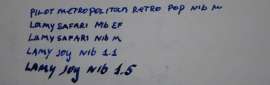 PILOT METROPOLITAN RETRO POP NIB M
LAMY SAFARI NIB EF
LAMY SAFARI NIB M
LAMY JOY NIB 1.1
LAMY JOY NIB 1.5